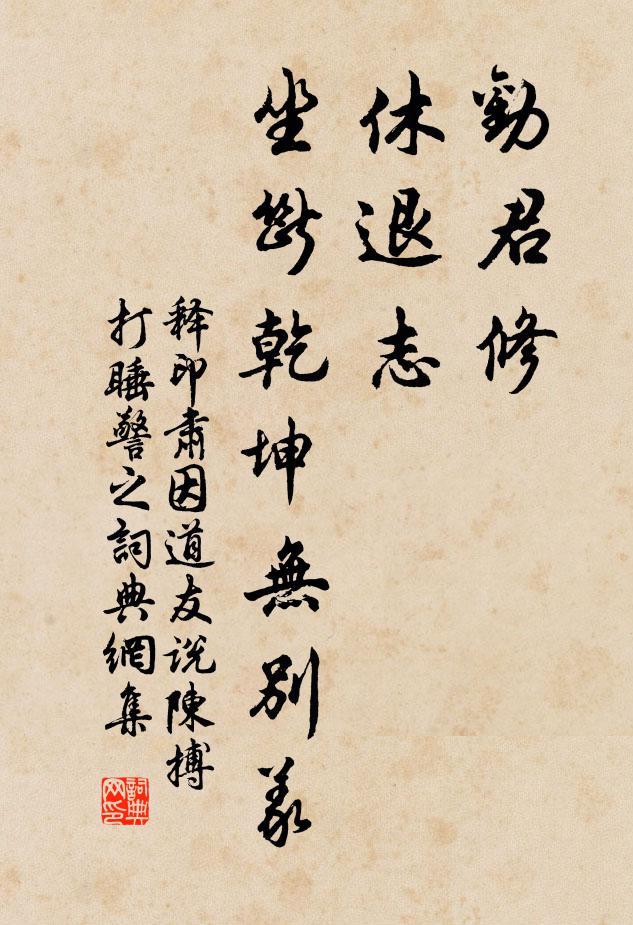 勸君修
休退志
坐斷乾坤無別義
釋印肅因道友说陳摶
打睡警之詞典網集
詞典
网印